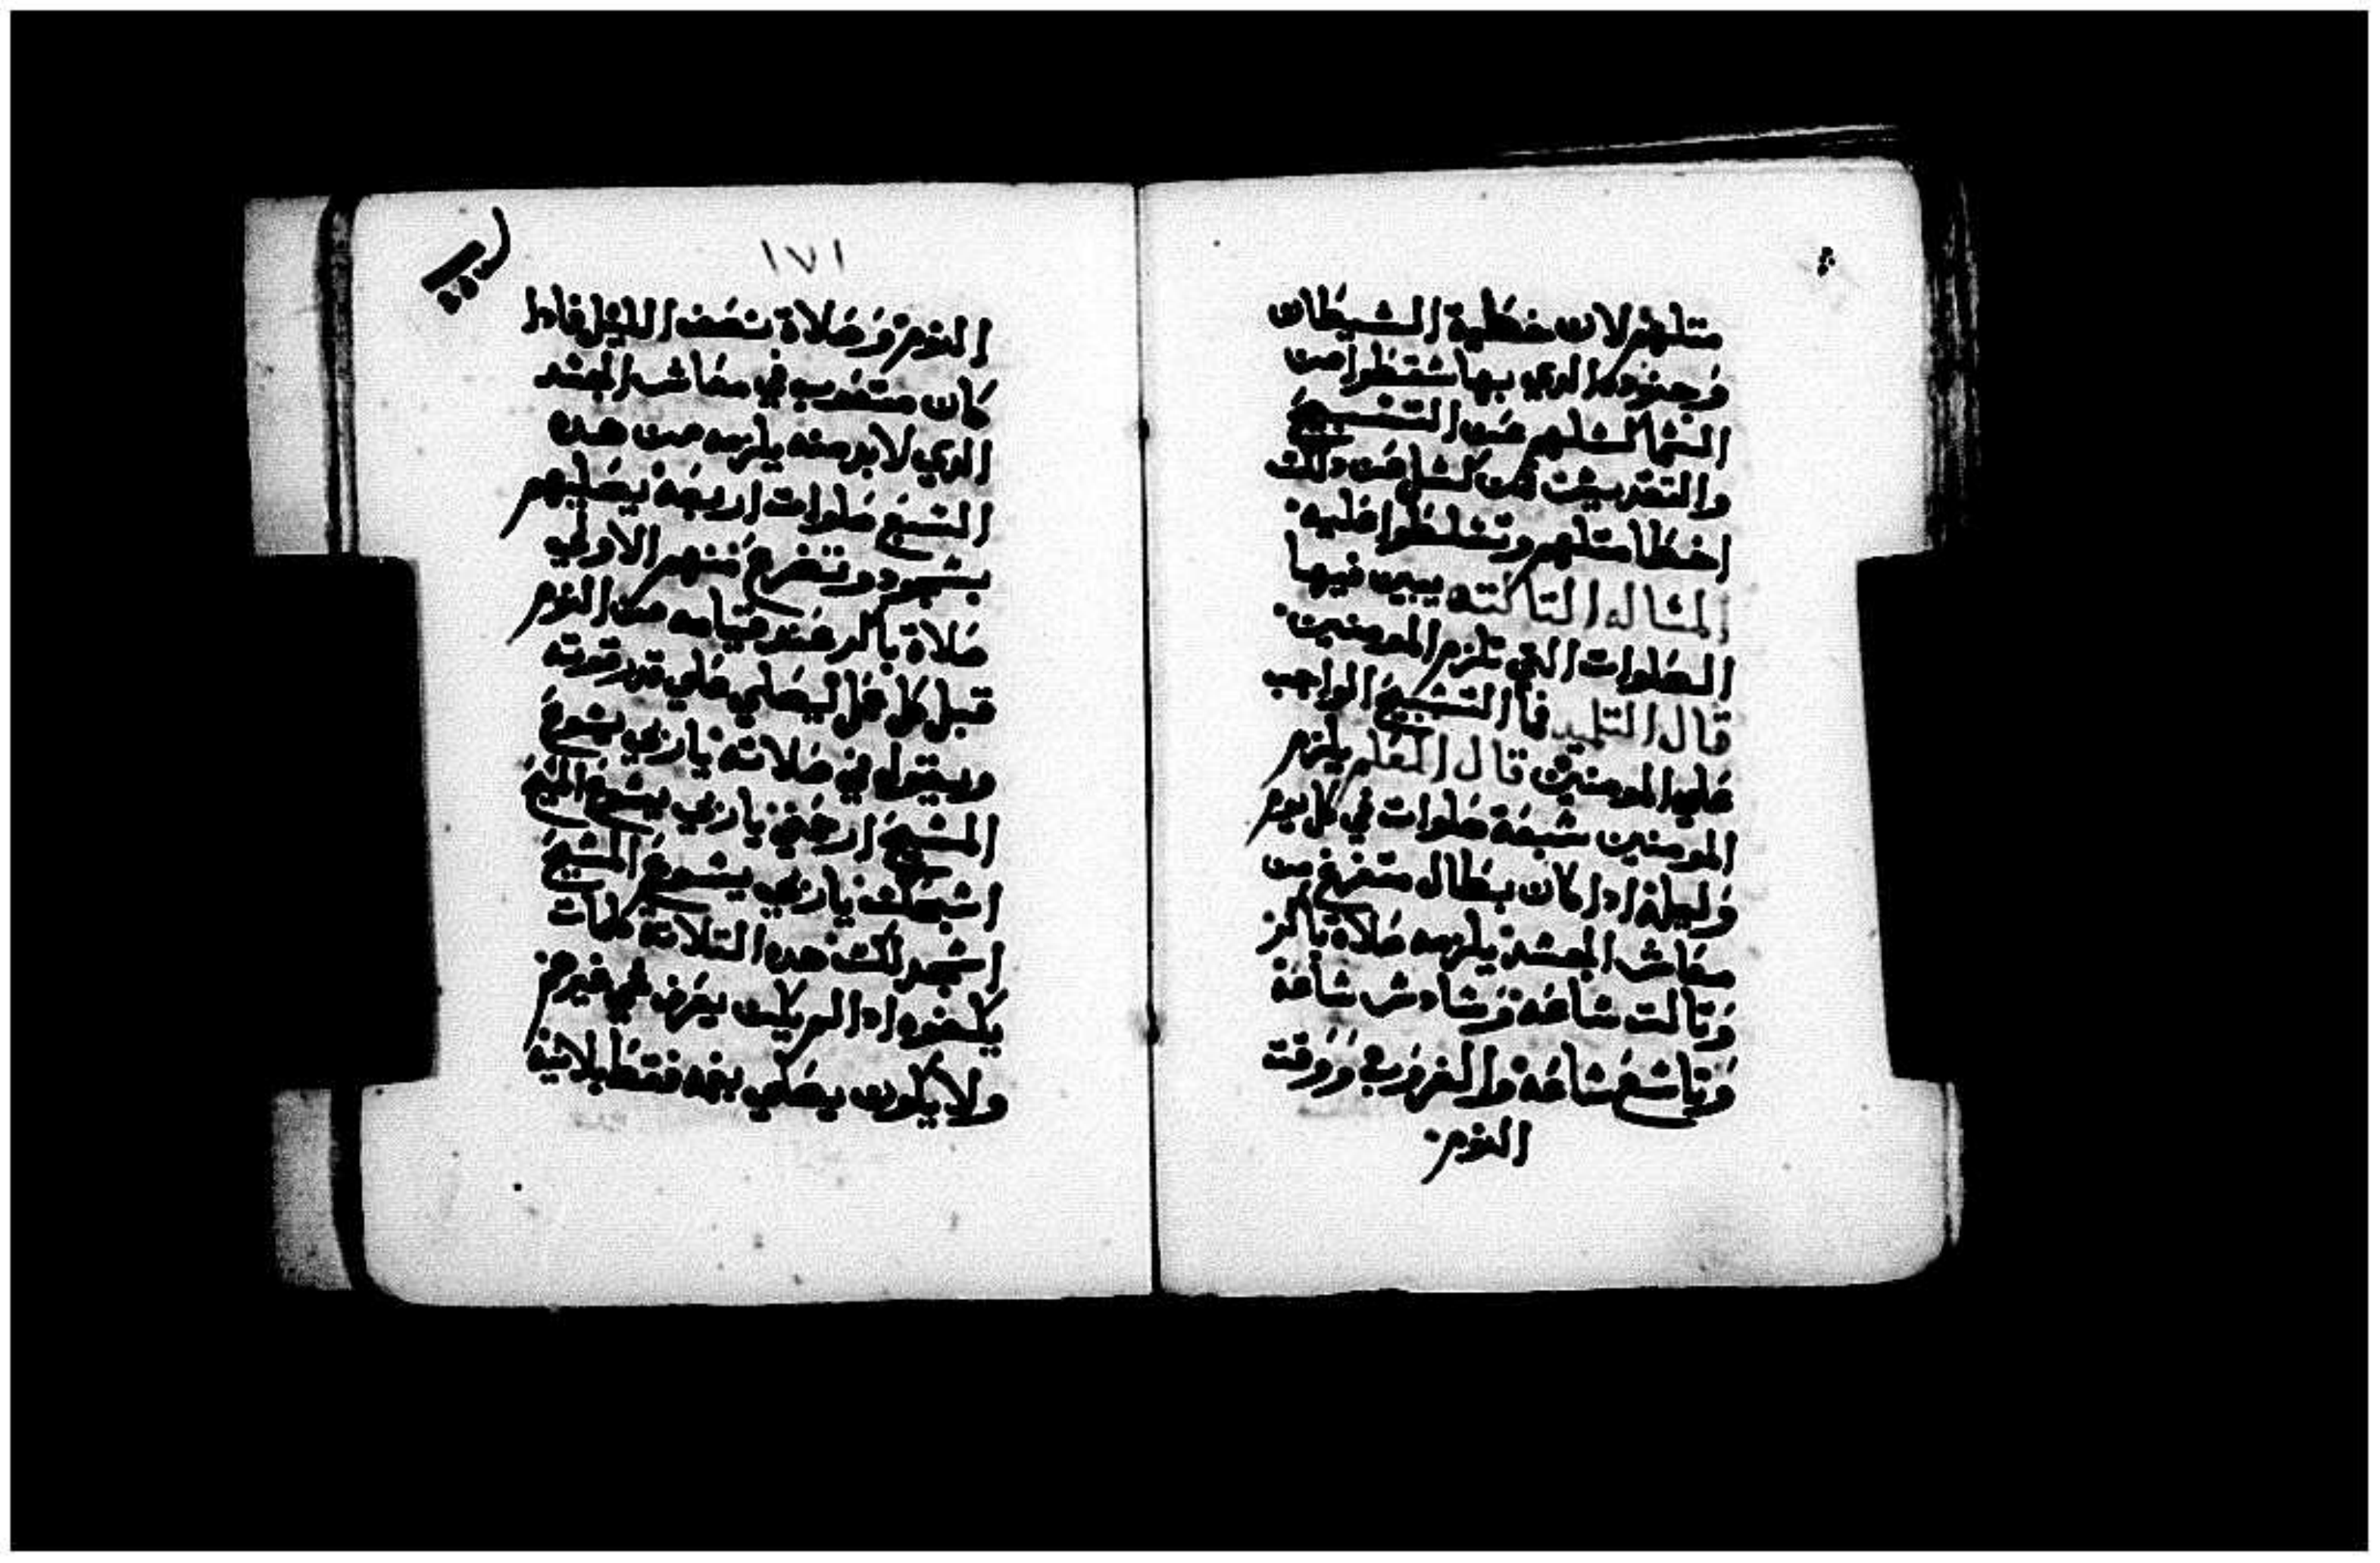 متلهم لان خطية الشيطان
وجنوده الدي بها سقطوا من
السما كسلهم عن التسبيح
والتقديس فمن كسل عن دلك
اخطا متلهم وتسلطوا عليه
المساله التالته يبين فيها
الصلوات التي تلزم المومنين
قال التلميد فما التسبيح الواجب
علي المومنين قال المعلم يلزم
المومنين سبعة صلوات في كل يوم
وليلة ادا كان بطال متفرغ من
معاش الجسد يلزمه صلاة باكر
وتالت ساعه وسادس ساعة
وتاسع ساعه والغروب ووقت
النوم
١٧١
النوم وصلاة نصف الليل فادا
كان متعوب في معاش الجسد
الدي لابد منه يلزمه من هده
السبع صلوات اربعة يصليهم
بسجود وتضرع منهم الاولي
صلاة باكر عند قيامه من النوم
قبل كل عمل يصلي علي قدر قوته
ويقول في صلاته ياربي يسوع
المسيح ارحمني ياربي يسوع المسيح
اسبحك ياربي يسوع المسيح
اسجد لك هده التلاتة كلمات
يكفوه ادا لم يكن يعرف شي غيرهم
ولا يكون يصلي بفمه فقط بلانية